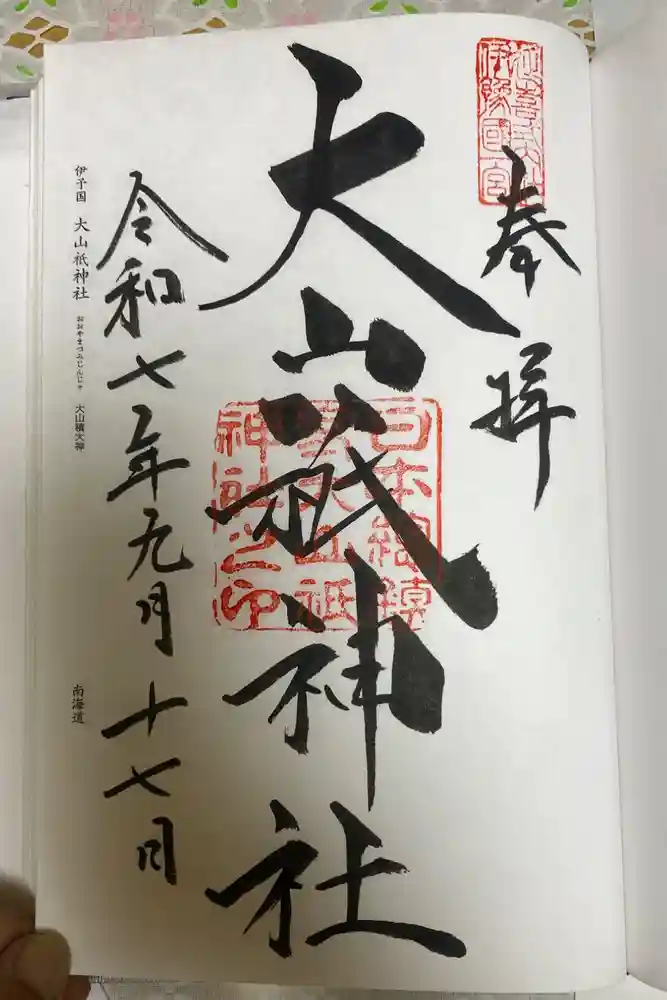 延喜式内社
伊豫國一宮
奉拝
大山祇神社
日本総鎮
守大山祇
神社之印
令和七年九月十七日
伊予国 大山祇神社 おおやまづみじんじゃ 大山積大神
南海道